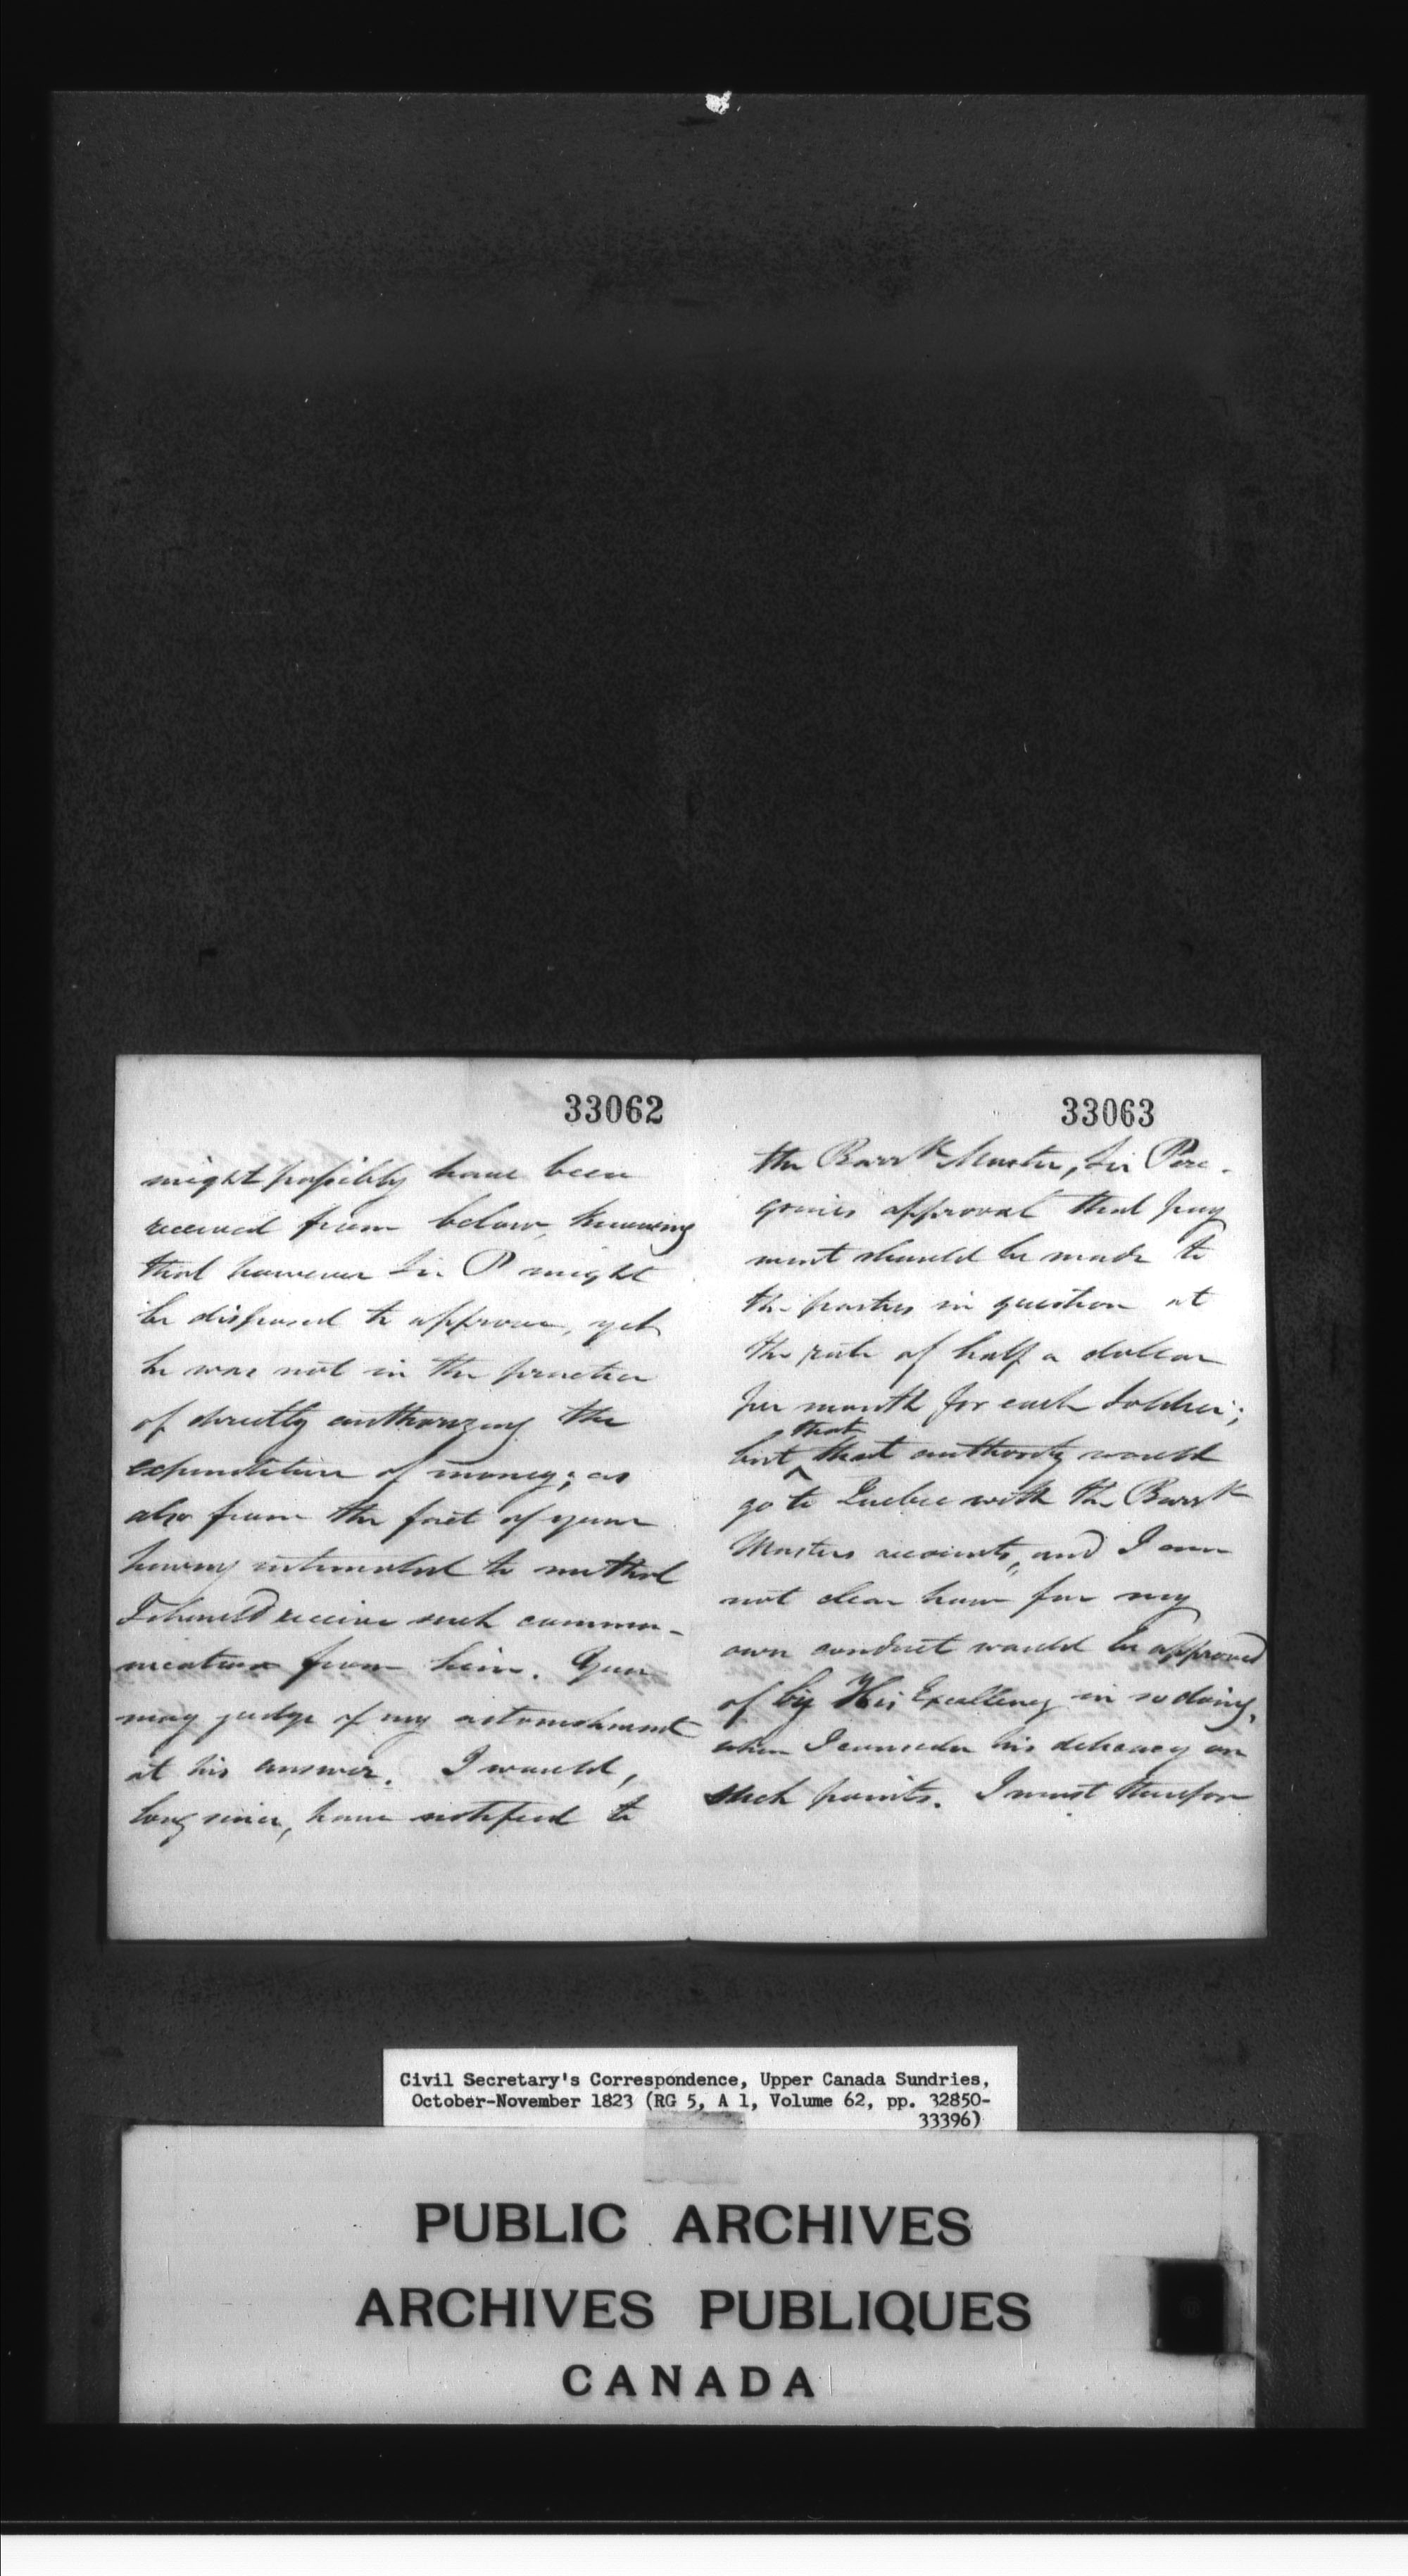 33062
might possibly have been
received from below, knowing
that however Sir P might
be disposed to approve, yet
he was not in the practice
of directly authorizing the
expenditure of money; as
also from the fact of your
having intimated to me that
I should receive such commu-
nication from him. You
may judge of my astonishment
at his answer. I would,
long since, have notified to
33063
the Barrk Master, Sir Pere-
grines approval that pay
ment should be made to
the parties in question at
the rate of half a dollar
per month for each Soldier;
that
but that authority would
go to Quebec with the Barrk
Masters accounts, and I am
not clear how far my
own conduct would be approved
of by His Excellency in so doing,
when I consider his delicacy on
such points. I must therefore
Civil Secretary's Correspondence, Upper Canada Sundries,
October-November 1823 (RG 5, A 1, Volume 62, pp. 32850-
33396)
PUBLIC ARCHIVES
ARCHIVES PUBLIQUES
CANADA